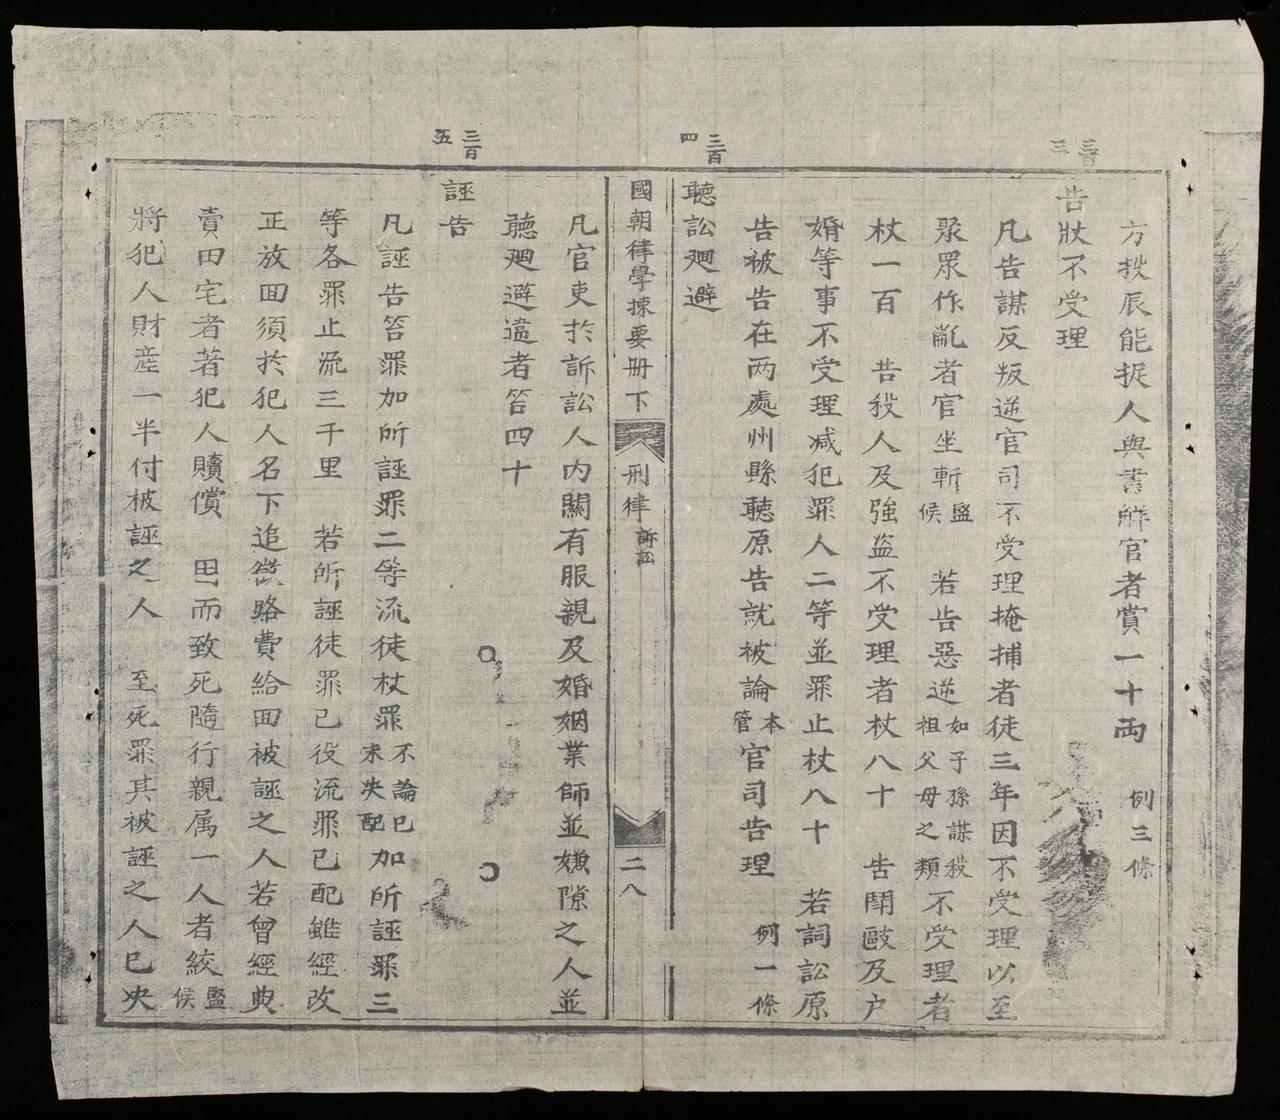 三百三
三百四
三百五
方拽辰能捉人與書觧官者賞一十両 例三條
告狀不受理
凡告謀反叛逆官司不受理掩捕者徒三年因不受理以至
聚眾作亂者官坐斬監候 若告惡逆如子孫謀殺祖父母之類不受理者
杖一百 告殺人及強盗不受理者杖八十 告鬪毆及户
婚等事不受理减犯罪人二等並罪止杖八十 若詞訟原
告被告在两處州縣聽原告就被論本管官司告理 例一條
聽訟廻避
國朝律學揀要册下 刑律 訴訟 二八
凡官吏於訴訟人内關有服親及婚姻業師並嫌隙之人並
聽廻避違者笞四十
誣告
凡誣告笞罪加所誣罪二等流徒杖罪不論已决配未决配加所誣罪三
等各罪止流三千里 若所誣徒罪已役流罪已配雖經改
正放囬須於犯人名下追徵路費給囬被誣之人若曾經典
賣田宅者著犯人贖償 因而致死隨行親属一人者絞監候
將犯人財産一半付被誣之人 至死罪其被誣之人已决